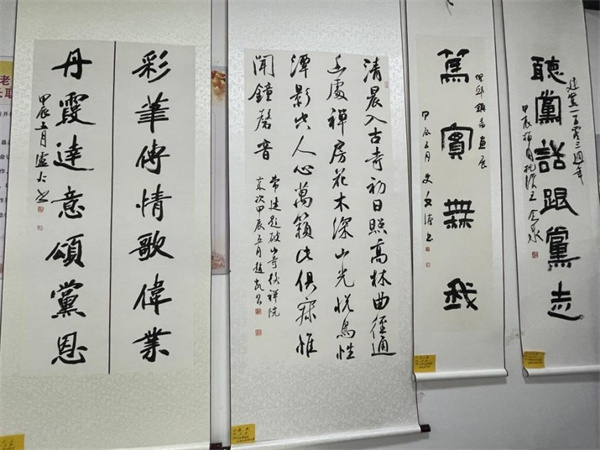 彩筆傳情歌偉業
丹霞達意頌黨恩
甲辰五月
清晨入古寺初日照高林曲徑通
幽處禪房花木深山光悅鳥性
潭影空人心萬籟此俱寂惟
聞鐘磬音
常建題破山寺後禪院
歲次甲辰五月趙凱書
篤實無我
甲辰五月
建黨一百零三週年
聽黨話跟黨走
甲辰